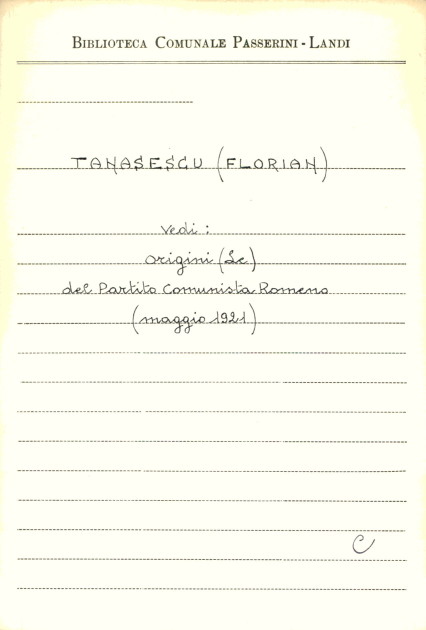 BIBLIOTECA COMUNALE PASSERINI - LANDI
TANASESCU (FLORIAN)
Vedi :
origini (Le)
del Partito Comunista Romeno
(maggio 1921)
C